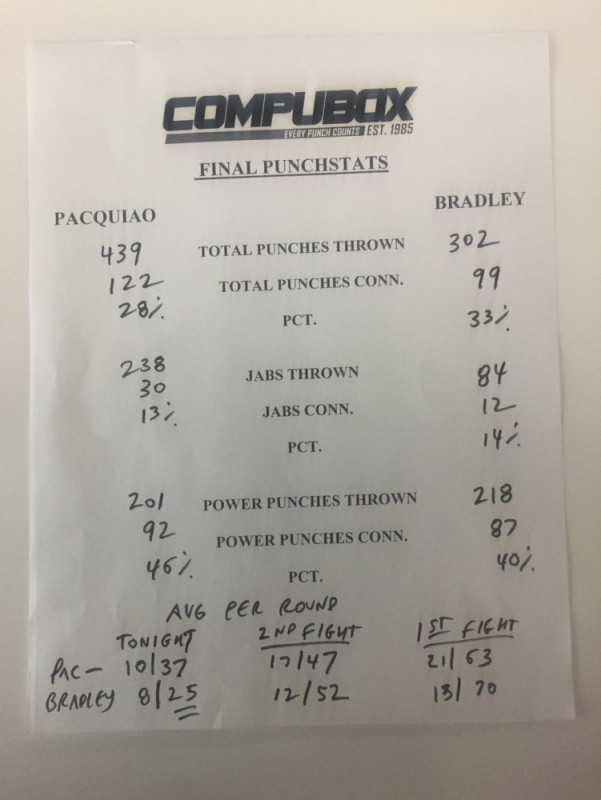 COMPUBOX
EVERY PUNCH COUNTS EST. 1985
FINAL PUNCHSTATS
PACQUIAO BRADLEY
439 TOTAL PUNCHES THROWN 302
122 TOTAL PUNCHES CONN. 99
28% PCT. 33%
238 JABS THROWN 84
30 JABS CONN. 12
13% PCT. 14%
201 POWER PUNCHES THROWN 218
92 POWER PUNCHES CONN. 87
46% PCT. 40%
AVG PER ROUND
TONIGHT 2ND FIGHT 1ST FIGHT
PAC- 10/37 17/47 21/63
BRADLEY 8/25 12/52 13/70